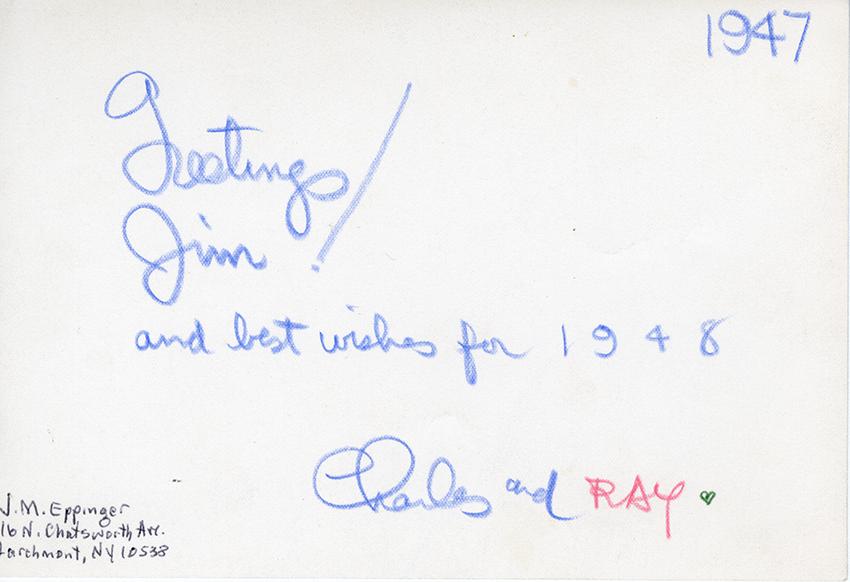 1947
Greetings
Jim!
and best wishes for 1948
Charles and RAY
J.M. Eppinger
16 N. Chatsworth Ave.
Larchmont, NY 10538